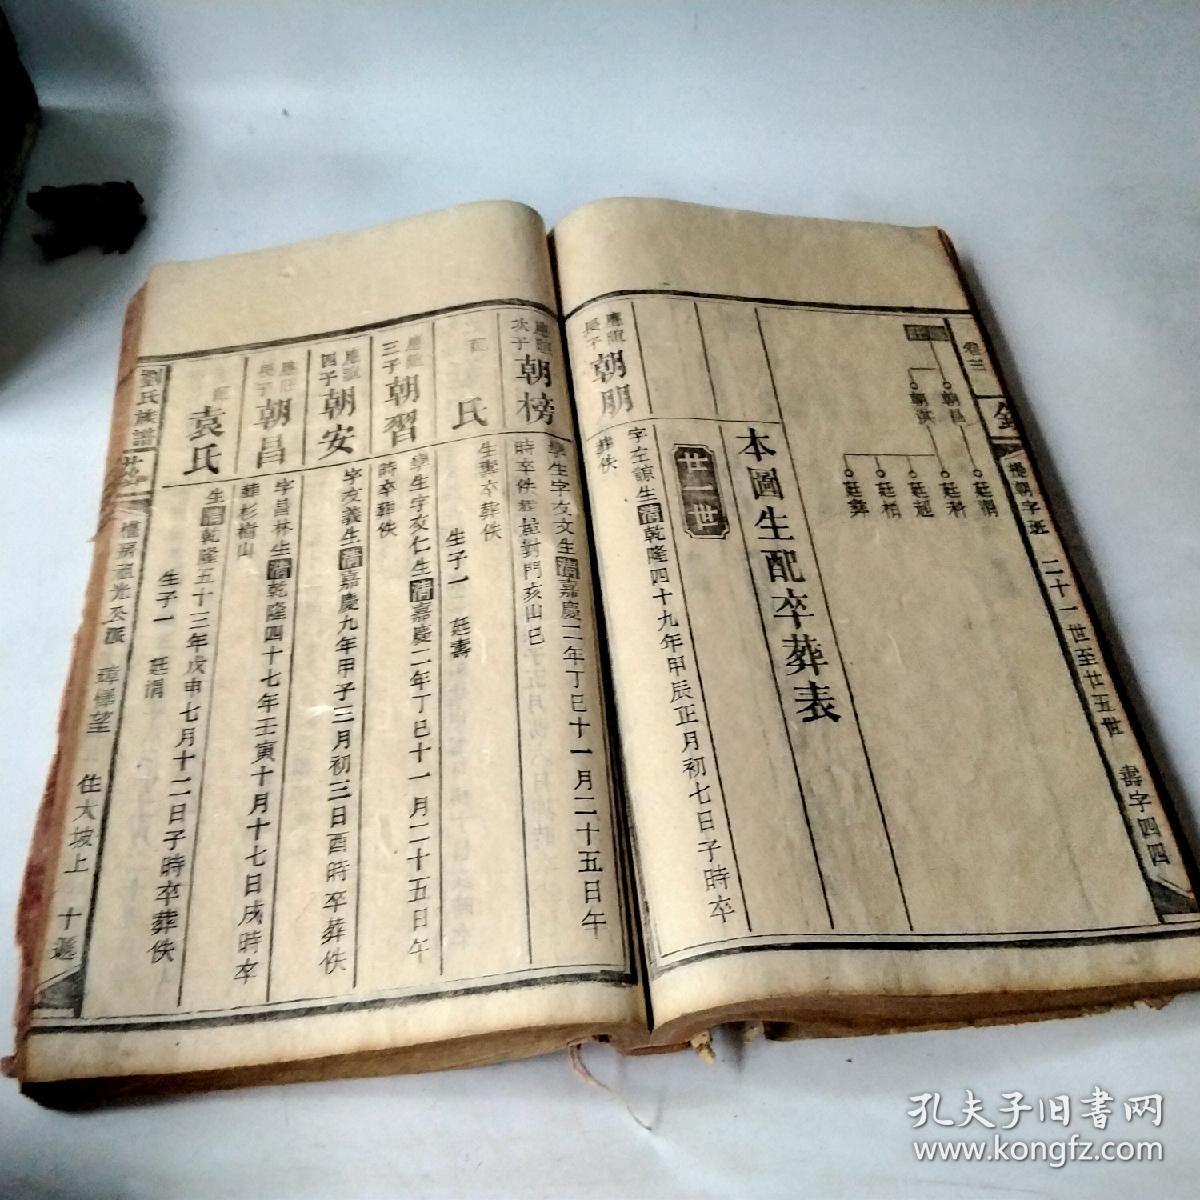 卷三
應朝字派
二十一世至廿五世
壽字四四
朝昌
朝淇
廷弼
廷科
廷冠
廷相
廷彝
本圖生配卒葬表
廿一世
應龍長子
朝朋
字左諒生清乾隆四十九年甲辰正月初七日子時卒
葬佚
應龍次子
朝榜
學生字友文生清嘉慶二年丁巳十一月二十五日午
時卒佚葬
對門亥山巳
配
氏
生壽卒葬佚
生子一
廷壽
應龍三子
朝習
學生字友仁生清嘉慶二年丁巳十一月二十五日午
時卒葬佚
應龍四子
朝安
字友義生清嘉慶九年甲子三月初三日酉時卒葬佚
長子
朝昌
字昌林生清乾隆四十七年壬寅十月十七日戍時卒
葬杉樹山
配
袁氏
生清乾隆五十三年戊申七月十二日子時卒葬佚
生子一
廷清
氏族譜
住大坡上
十遜
孔夫子旧书网
www.kongfz.com